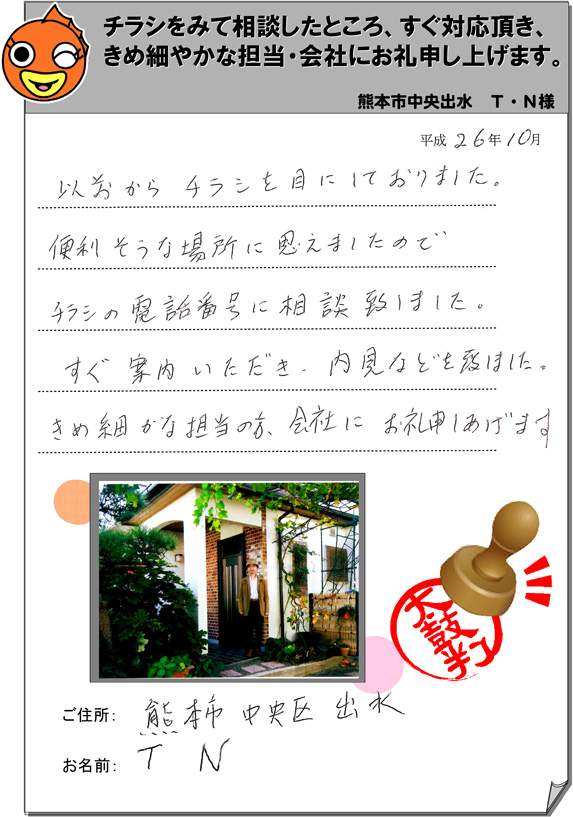 チラシをみて相談したところ、すぐ対応頂き、
きめ細やかな担当・会社にお礼申し上げます。
熊本市中央出水　T・N様
平成 26年10月
以前から チラシを目にしておりました。
便利そうな場所に思えましたので
チラシの電話番号に相談致しました。
すぐ案内いただき、内見などを致ました。
きめ細かな担当の方、会社に お礼申しあげます
太鼓判
ご住所： 熊本市 中央区 出水
お名前： T N